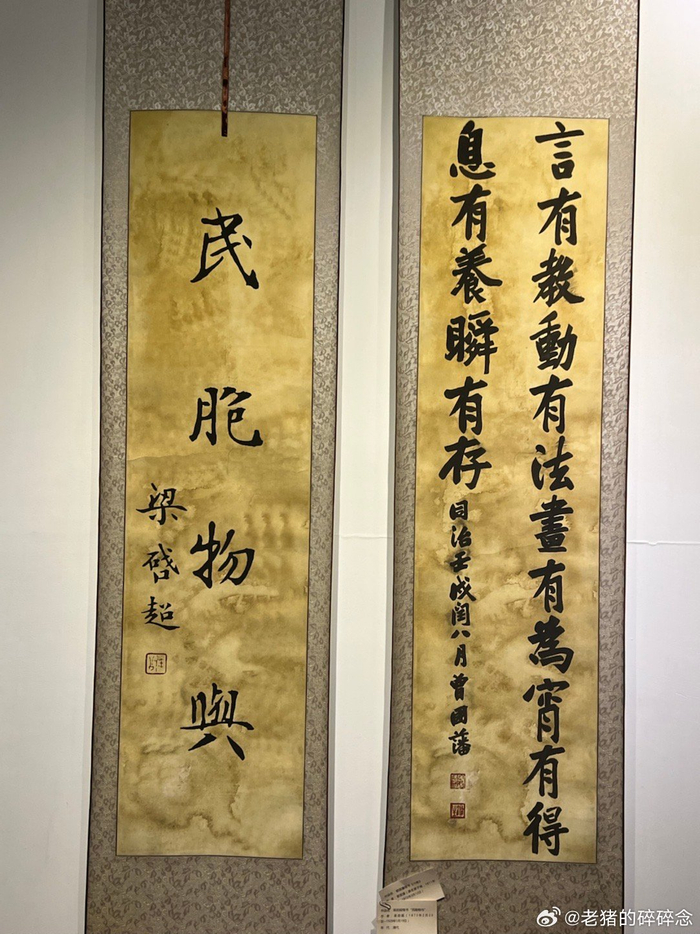 言有教動有法晝有為宵有得
息有養瞬有存
同治壬戌閏八月曾國藩
民胞物與
梁啓超
@老猪的碎碎念